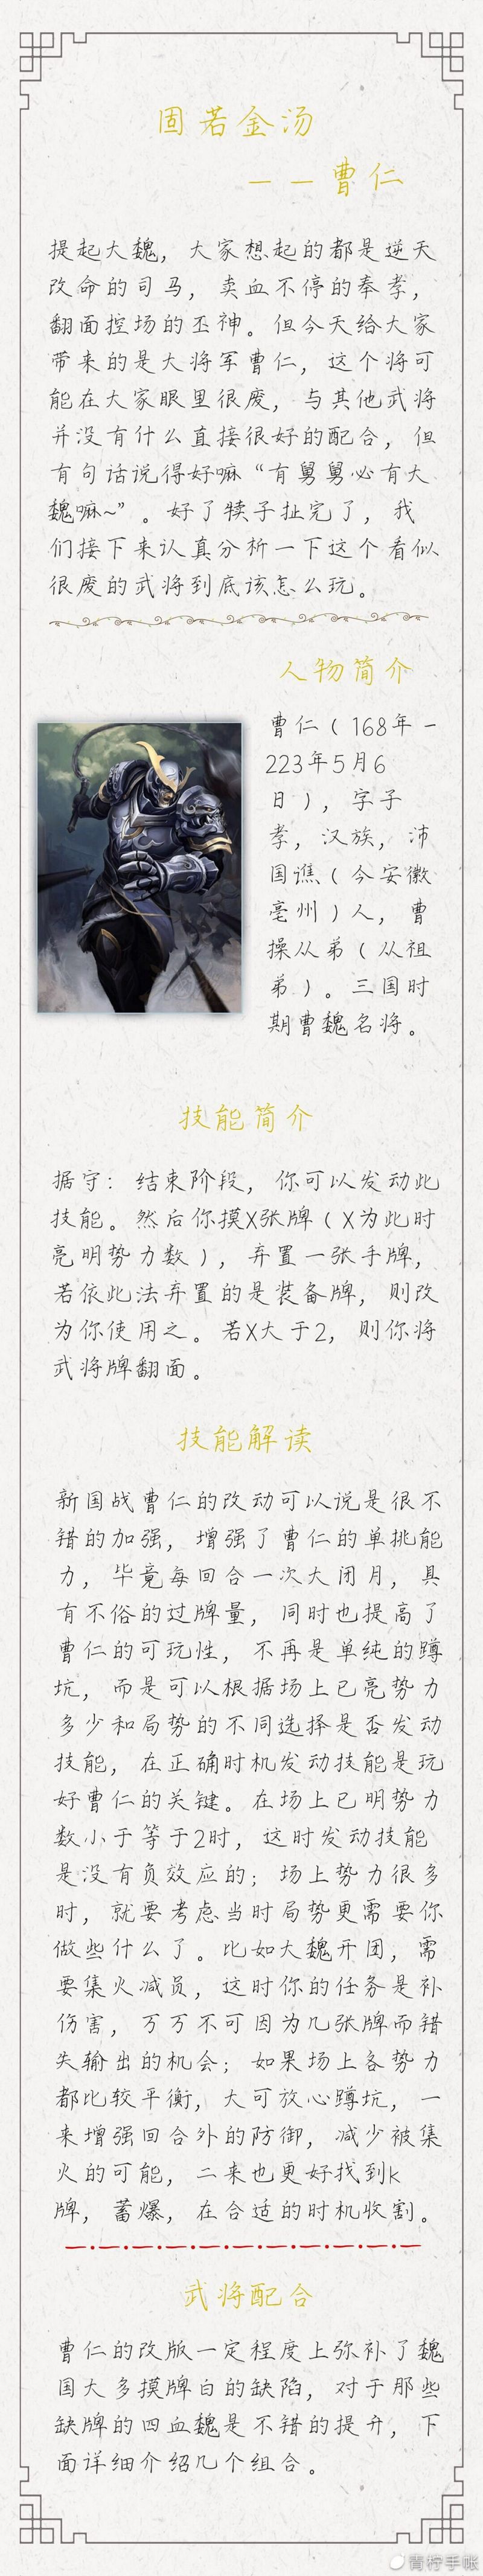 固若金汤
——曹仁
提起大魏，大家想起的都是逆天
改命的司马，卖血不停的奉孝，
翻面控场的丕神。但今天给大家
带来的是大将军曹仁，这个将可
能在大家眼里很废，与其他武将
并没有什么直接很好的配合，但
有句话说得好嘛“有舅舅必有大
魏嘛~”。好了犊子扯完了，我
们接下来认真分析一下这个看似
很废的武将到底该怎么玩。
人物简介
曹仁（168年－
223年5月6
日），字子
孝，汉族，沛
国谯（今安徽
亳州）人，曹
操从弟（从祖
弟）。三国时
期曹魏名将。
技能简介
据守：结束阶段，你可以发动此
技能。然后你摸X张牌（X为此时
亮明势力数），弃置一张手牌，
若依此法弃置的是装备牌，则改
为你使用之。若X大于2，则你将
武将牌翻面。
技能解读
新国战曹仁的改动可以说是很不
错的加强，增强了曹仁的单挑能
力，毕竟每回合一次大闭月，具
有不俗的过牌量，同时也提高了
曹仁的可玩性，不再是单纯的蹲
坑，而是可以根据场上已亮势力
多少和局势的不同选择是否发动
技能，在正确时机发动技能是玩
好曹仁的关键。在场上已明势力
数小于等于2时，这时发动技能
是没有负效应的；场上势力很多
时，就要考虑当时局势更需要你
做些什么了。比如大魏开团，需
要集火减员，这时你的任务是补
伤害，万万不可因为几张牌而错
失输出的机会；如果场上各势力
都比较平衡，大可放心蹲坑，一
来增强回合外的防御，减少被集
火的可能，二来也更好找到k
牌，蓄爆，在合适的时机收割。
武将配合
曹仁的改版一定程度上弥补了魏
国大多摸牌白的缺陷，对于那些
缺牌的四血魏是不错的提升，下
面详细介绍几个组合。
青柠手帐